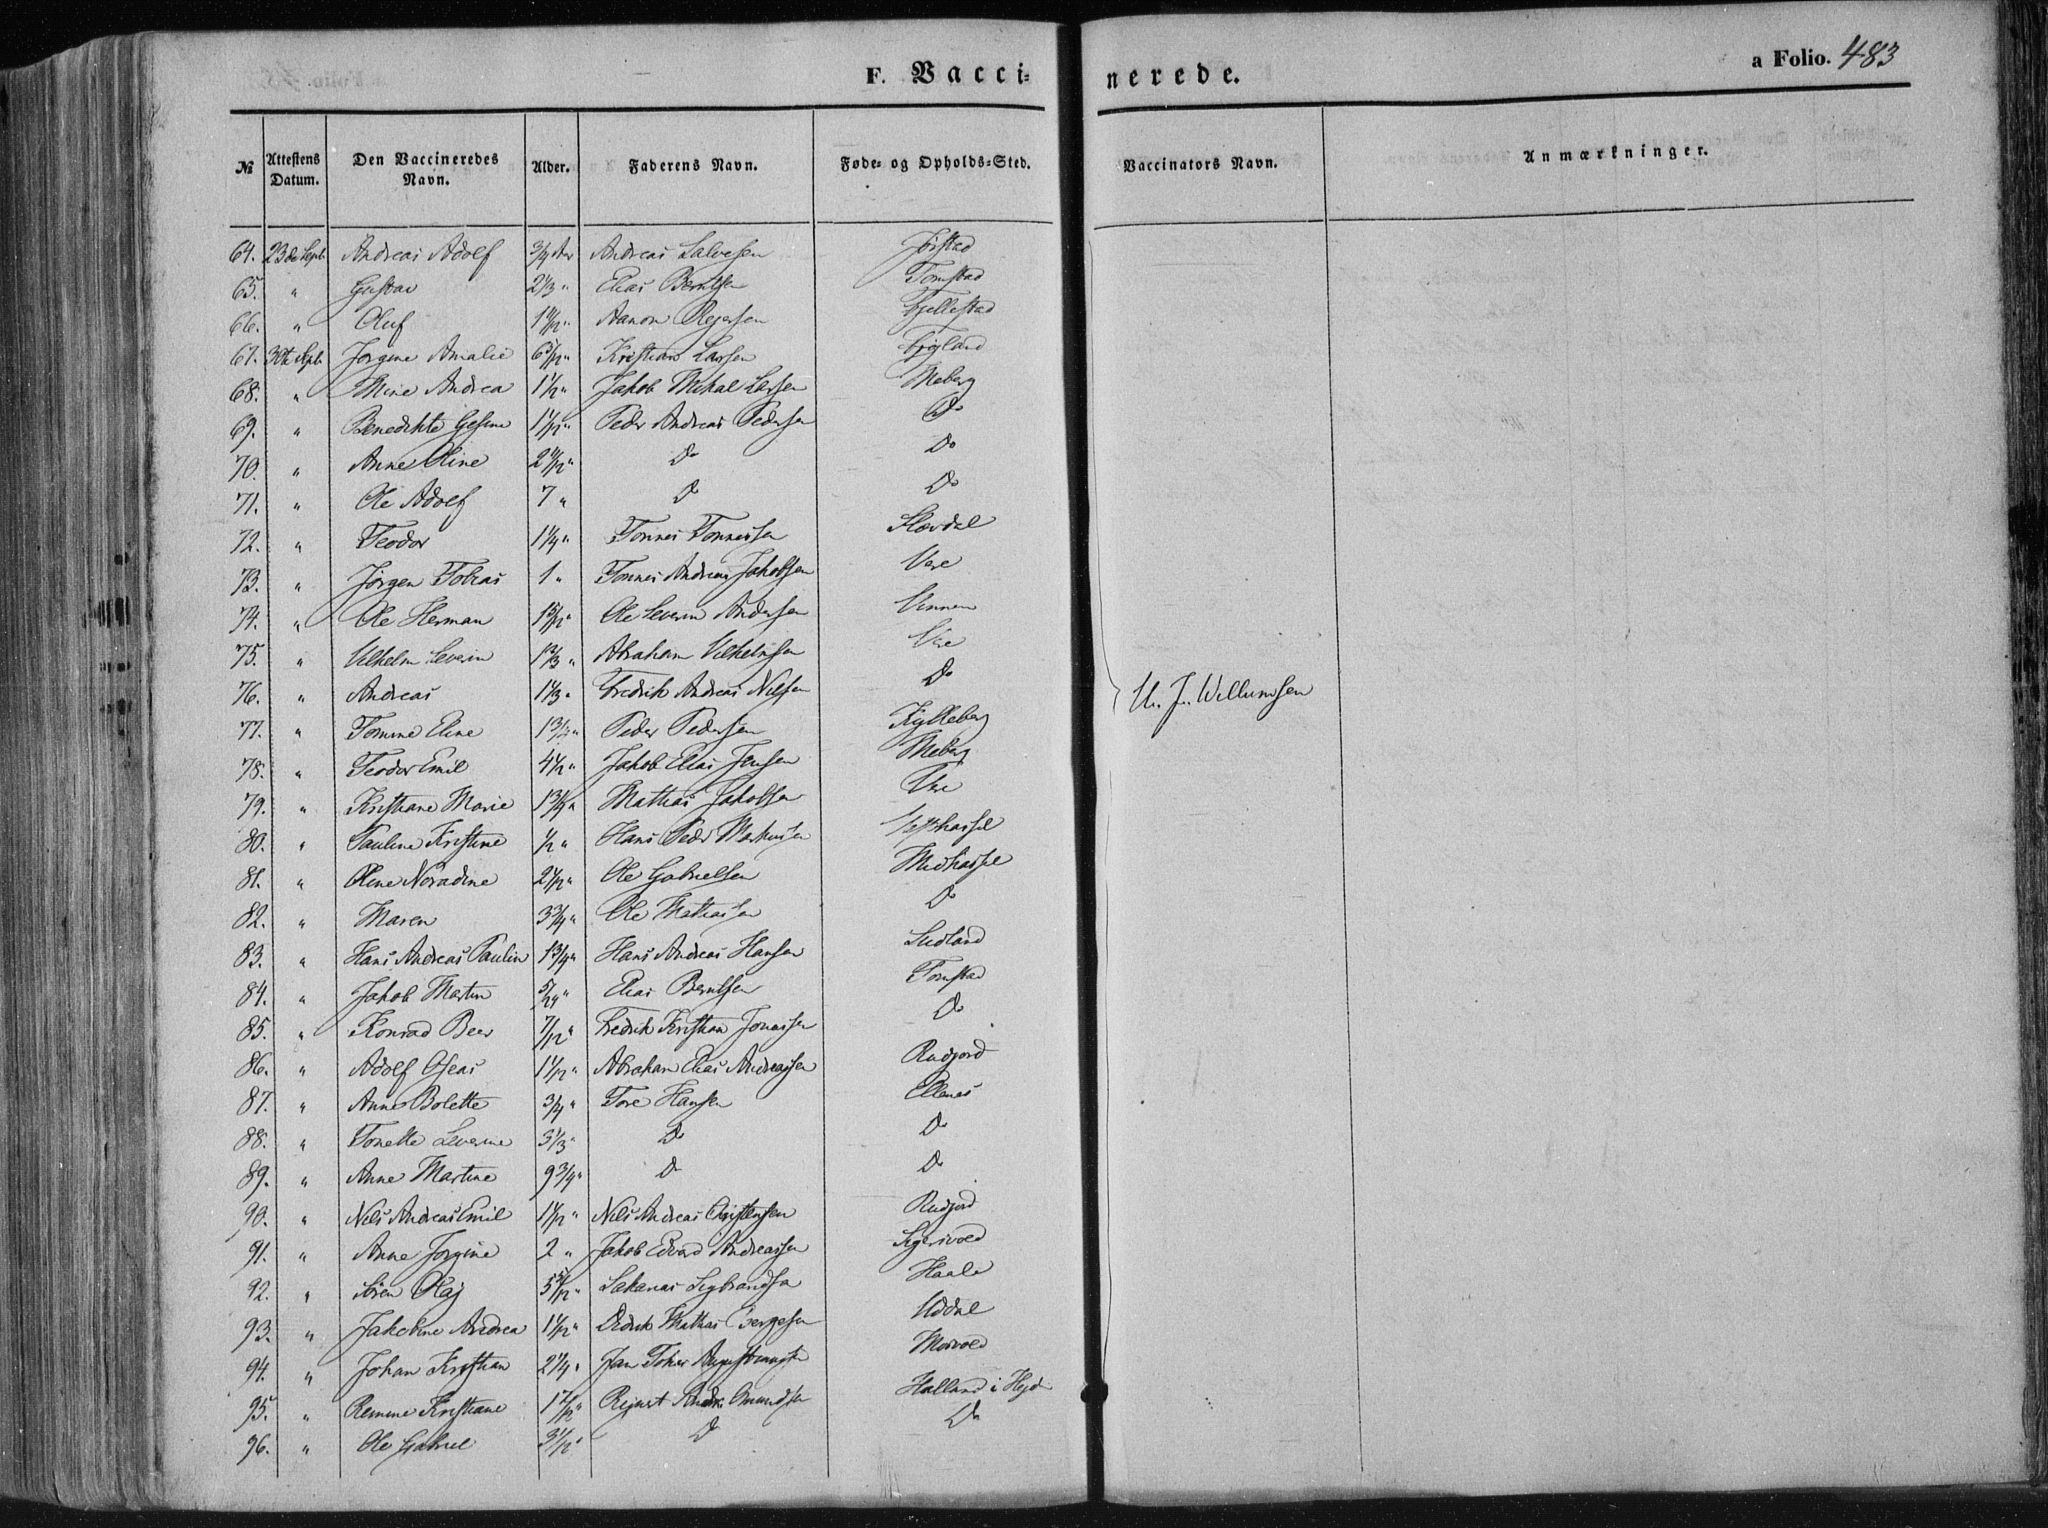 F. Vaccinerede.
a Folio. 483
№ Attestens Datum. Den Vaccineredes Navn. Alder. Faderens Navn. Føde- og Opholds-Sted. Vaccinators Navn. Anmærkninger.
64. 23de Sept. Andreas Adolf 3/4 Andreas Salvesen Jørstad
65. " Gustav 2 1/3 " Elias Berntsen Tomstad
66. " Oluf Aanon Rejersen Fjellestad
67. 30te Sept. Jørgine Amalie 6 5/12 " Kristian Larsen
68. " Mine Andrea 1 1/2 " Jakob Mikal Larsen Meberg
69. " Benedikte Gesine Peder Andreas Pedersen Do
70. " Anne Oline Do Do
71. " Ole Adolf 7 " Do Do
72. " Teodor 1 1/4 " Tønnes Tønnessen Stordal
73. " Jørgen Tobias 1 " Tønnes Andreas Jakobsen Vere
74. " Ole Herman Ole Severin Andersen
75. " Vilhelm Severin Abraham Vilhelmsen Vere
76. " Andreas 1 1/3 " Fredrik Andreas Nilsen Do
U. J. Willumsen
77. " Tomine Eline Peder Pedersen
78. " Teodor Emil Jakob Elias Jensen Meberg
79. " Kristiane Marie 1 3/4 " Mathias Jakobsen Vere
80. " Pauline Kristine 1/2 " Hans Peder Markussen Vesthassel
81. " Oline Noradine Ole Gabrielsen Midhassel
82. " Maren 3 3/4 " Ole Mathiassen Do
83. " Hans Andreas Paulin 1 3/4 " Hans Andreas Hansen Sudland
84. " Jakob Martin 5/24 " Elias Berntsen Tomstad
85. " Konrad Beer 7/12 " Fredrik Kristian Jonassen Do
86. " Adolf Oseas Abraham Elias Andreassen Rudjord
87. " Anne Bolette 3/4 " Tore Hansen Ellenes
88. " Tonette Severine 3 1/3 " Do Do
89. " Anne Martine 9 3/4 " Do Do
90. " Nils Andreas Emil Nils Andreas Christensen Rudjord
91. " Anne Jørgine 2 " Jakob Edvard Andreassen Sigersvold
92. " Søren Olaj 5 5/12 " Sakarias Sigbrandsen Haale
93. " Jakobine Andrea Didrik Mathias Børgesen Uddal
94. " Johan Kristian 2 1/4 " Jan Toker
95. " Remine Kristiane 1 7/12 " Rejert Andr. Omundsen Halland i Hejd
96. " Ole Gabriel Do Do